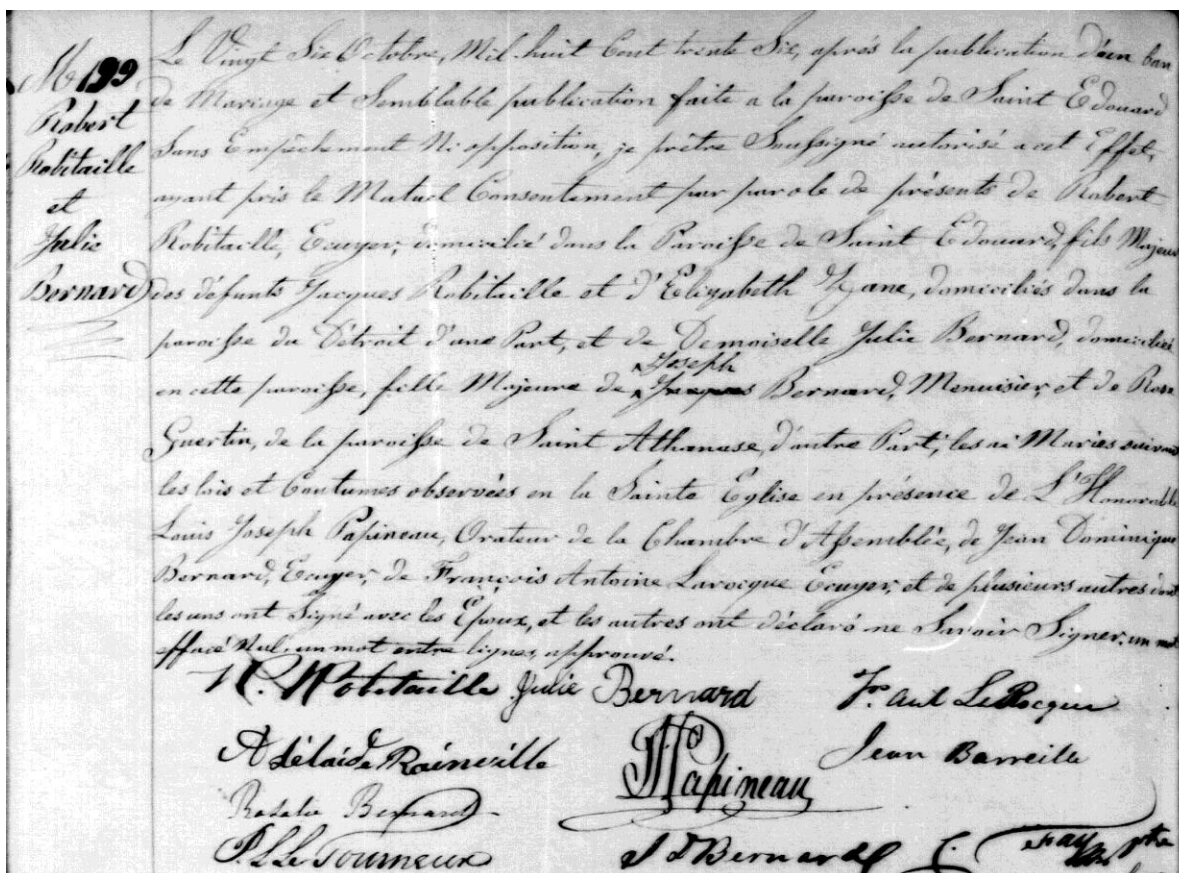 M 199
Robert
Robitaille
et
Julie
Bernard
Le Vingt Six Octobre, Mil huit Cent trente Six, après la publication d'un ban
de Mariage et Semblable publication faite a la paroisse de Saint Edouard
Sans Empêchement Ni opposition, je prêtre Soussigné autorisé a cet Effet,
ayant pris le Mutuel Consentement par parole de présents de Robert
Robitaille, Ecuyer, domicilié dans la Paroisse de Saint Edouard, fils Majeur
des défunts Jacques Robitaille et d'Elizabeth Zane, domiciliés dans la
paroisse du Détroit d'une Part, et de Demoiselle Julie Bernard, domiciliée
Joseph
en cette paroisse, fille Majeure de Jacques Bernard, Menuisier, et de Rose
Guertin, de la paroisse de Saint Athanase, d'autre Part, les ai Mariés suivant
les lois et Coutumes observées en la Sainte Eglise en présence de L'Honorable
Louis Joseph Papineau, Orateur de la Chambre d'Assemblée, de Jean Dominique
Bernard, Ecuyer, de François Antoine Larocque Ecuyer, et de plusieurs autres dont
les uns ont Signé avec les Epoux, et les autres ont déclaré ne Savoir Signer. un mot
effacé Nul. un mot entre lignes, approuvé.
R. Robitaille Julie Bernard Fr. Ant LaRocque
Adélaide Rainville Papineau Jean Barreille
Rosalie Bernard
P. L. Le Tourneux J D Bernard C. Fay Ptre